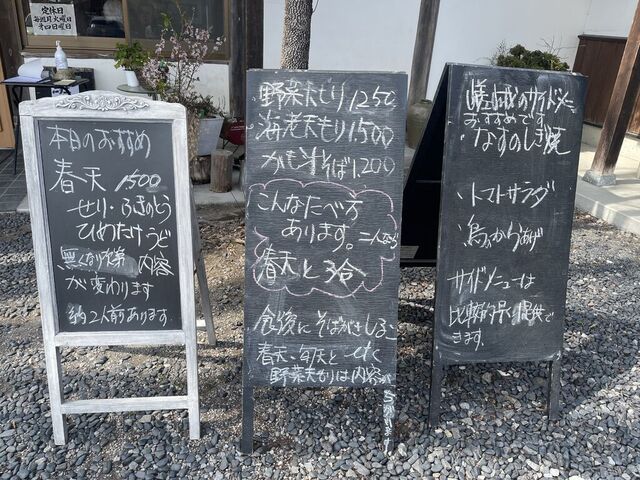 定休日
毎週月火曜日
第四日曜日
本日のおすすめ
春天 1500
せり・ふきのとう
ひめたけ うど
無くなり次第 内容
が変わります
約2人前あります。
・野菜天もり 1250
・海老天もり 1500
かも汁そば 1,200
こんなたべ方
あります。二人なら
春天と3合
食後にそばがきしるこ
春天・旬天と
野菜天もりは内容が
ちがいます
のサイドメニュー
おすすめです。
なすのしぎ焼
・トマトサラダ
・鳥のからあげ
サイドメニューは
比較的早く提供で
きます。